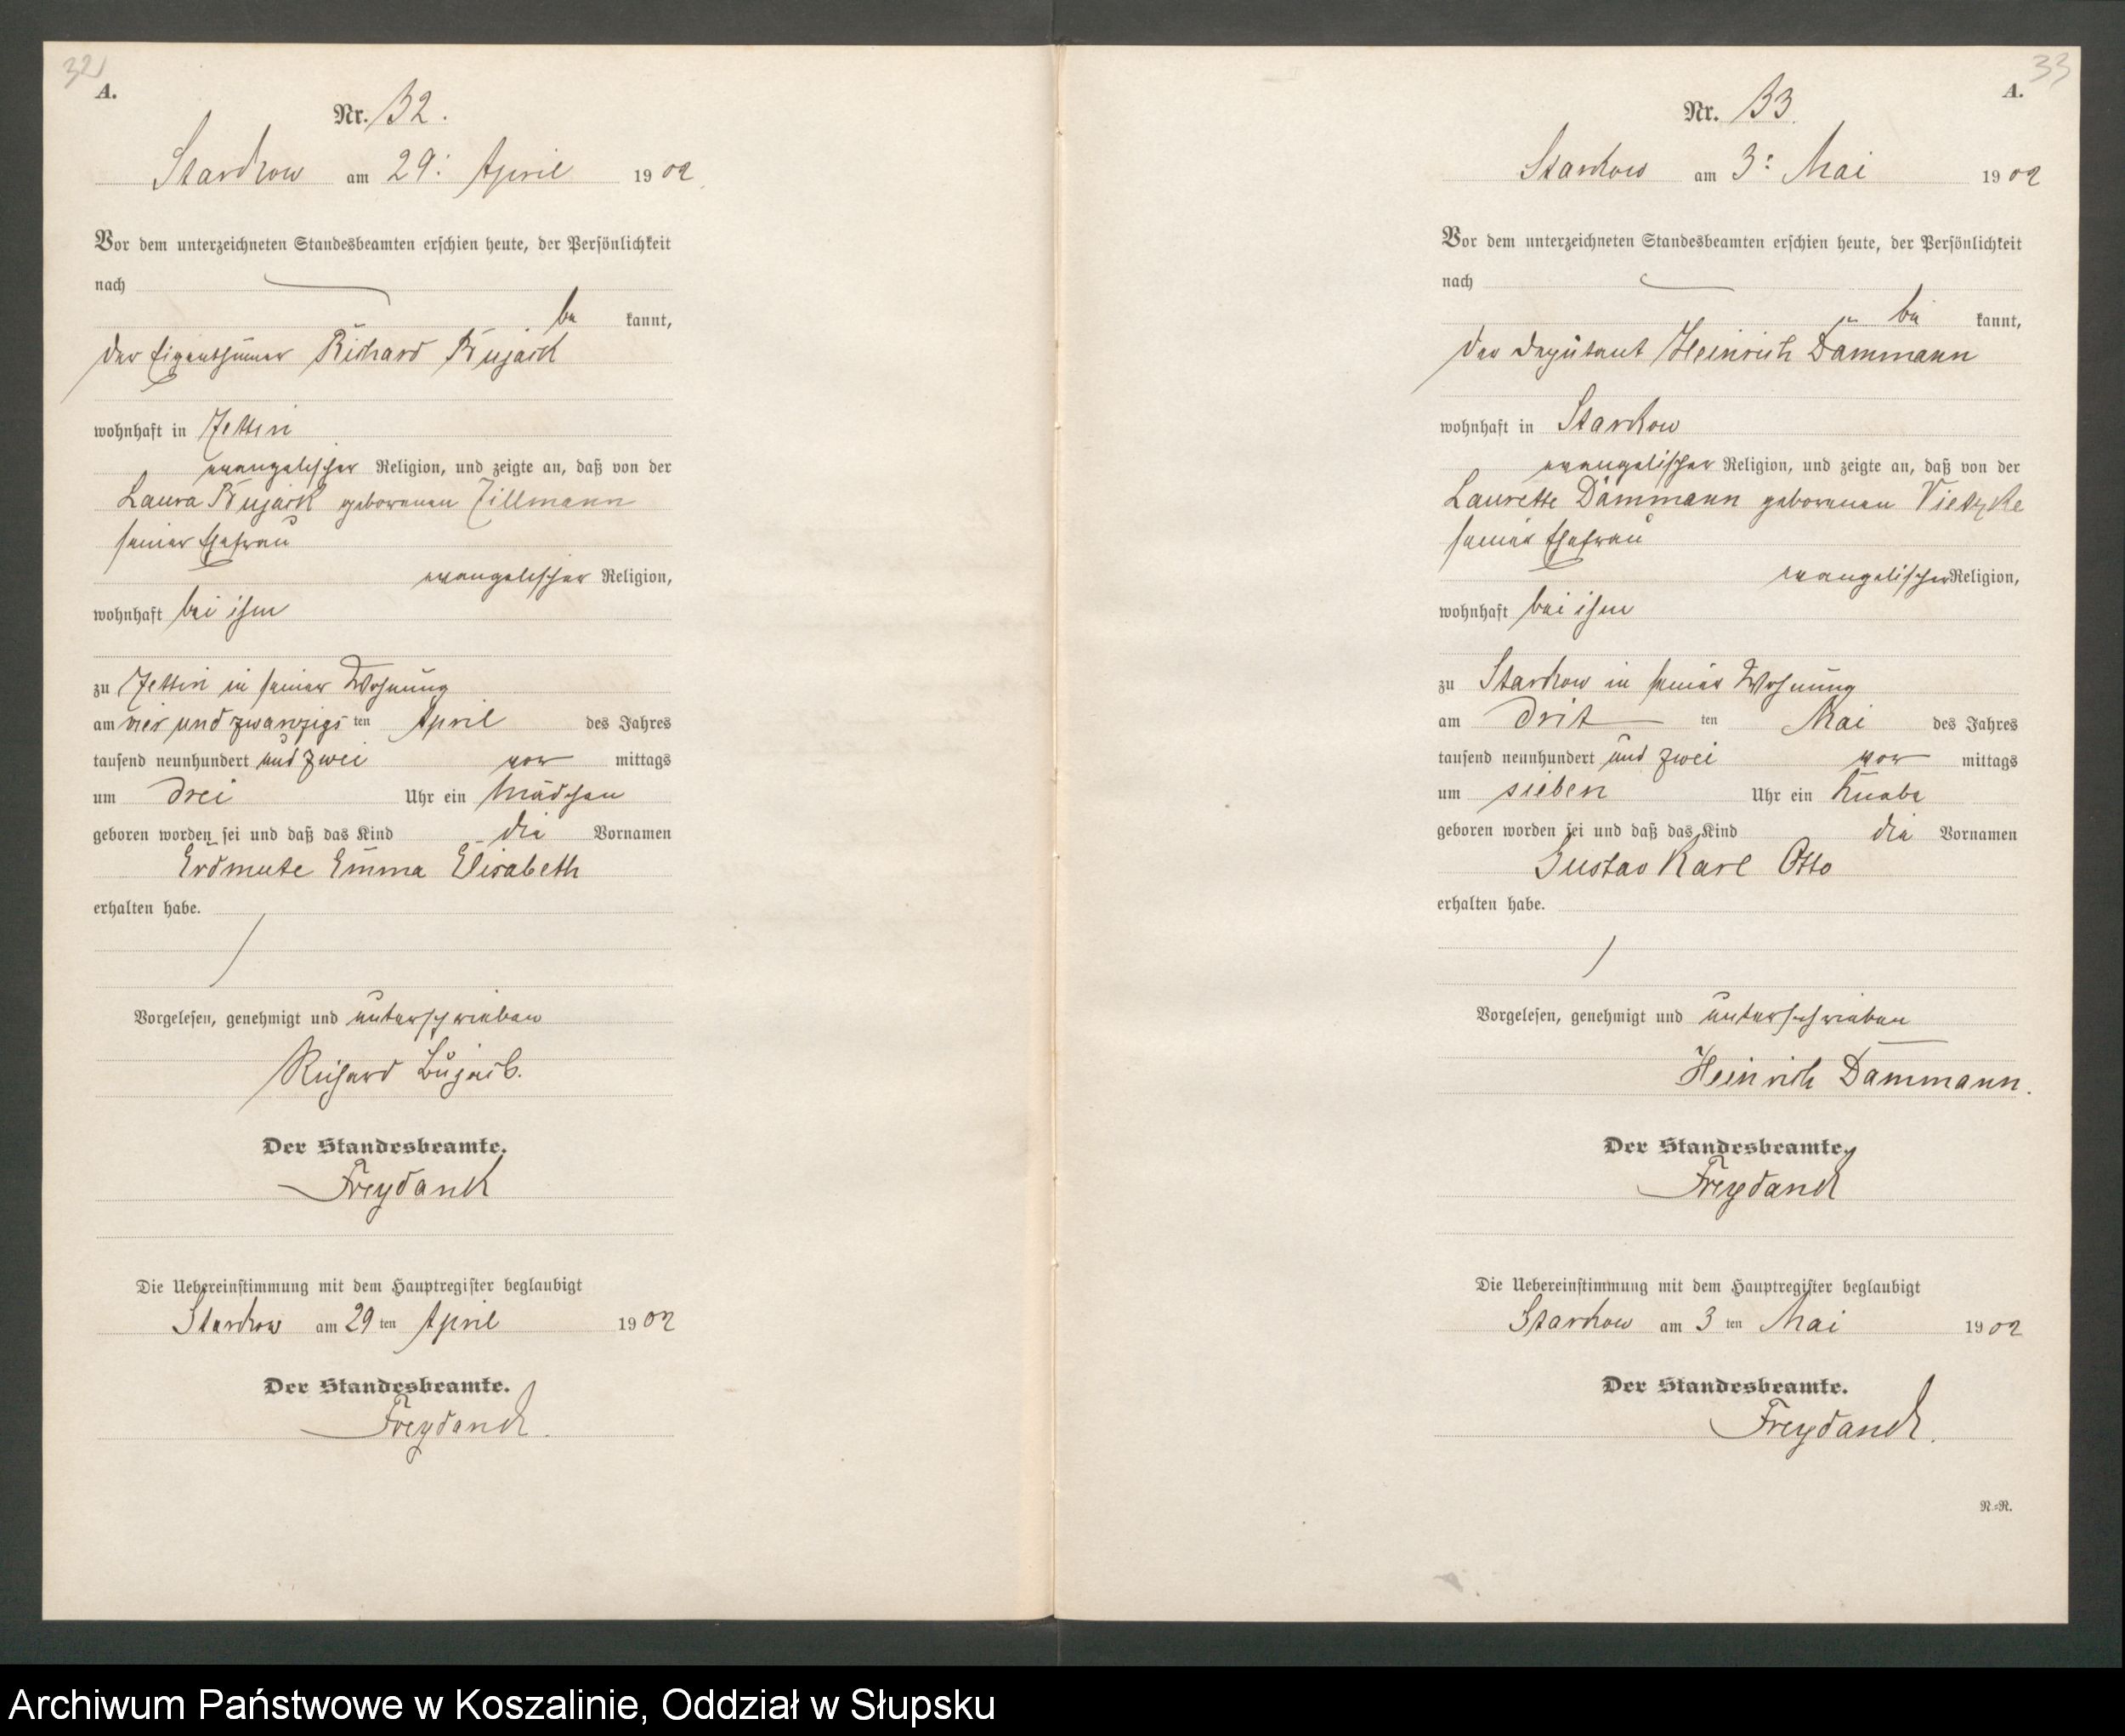 32
A.
Nr. 32.
Starkow am 29. April 1902
Vor dem unterzeichneten Standesbeamten erschien heute, der Persönlichkeit
nach
be kannt,
der Eigenthümer Richard Bujack
wohnhaft in
evangelischer Religion, und zeigte an, daß von der
Laura Bujack geborenen Zillmann
seiner Ehefrau
evangelischer Religion,
wohnhaft bei ihm
zu in seiner Wohnung
am vier und zwanzigs ten April des Jahres
tausend neunhundert und zwei vor mittags
um drei Uhr ein Mädchen
geboren worden sei und daß das Kind die Vornamen
Erdmute Emma Elisabeth
erhalten habe.
Vorgelesen, genehmigt und unterschrieben
Richard Bujack.
Der Standesbeamte.
Freydank
Die Uebereinstimmung mit dem Hauptregister beglaubigt
Starkow am 29 ten April 1902
Der Standesbeamte.
Freydank.
33
A.
Nr. 33.
Starkow am 3. Mai 1902
Vor dem unterzeichneten Standesbeamten erschien heute, der Persönlichkeit
nach
be kannt,
der Deputant Heinrich Dammann
wohnhaft in Starkow
evangelischer Religion, und zeigte an, daß von der
Laurette Dammann geborenen Vietzke
seiner Ehefrau
evangelischer Religion,
wohnhaft bei ihm
zu Starkow in seiner Wohnung
am drit ten Mai des Jahres
tausend neunhundert und zwei vor mittags
um sieben Uhr ein Knabe
geboren worden sei und daß das Kind die Vornamen
Gustav Karl Otto
erhalten habe.
Vorgelesen, genehmigt und unterschrieben
Heinrich Dammann.
Der Standesbeamte.
Freydank
Die Uebereinstimmung mit dem Hauptregister beglaubigt
Starkow am 3 ten Mai 1902
Der Standesbeamte.
Freydank.
N.=R.
Archiwum Państwowe w Koszalinie, Oddział w Słupsku